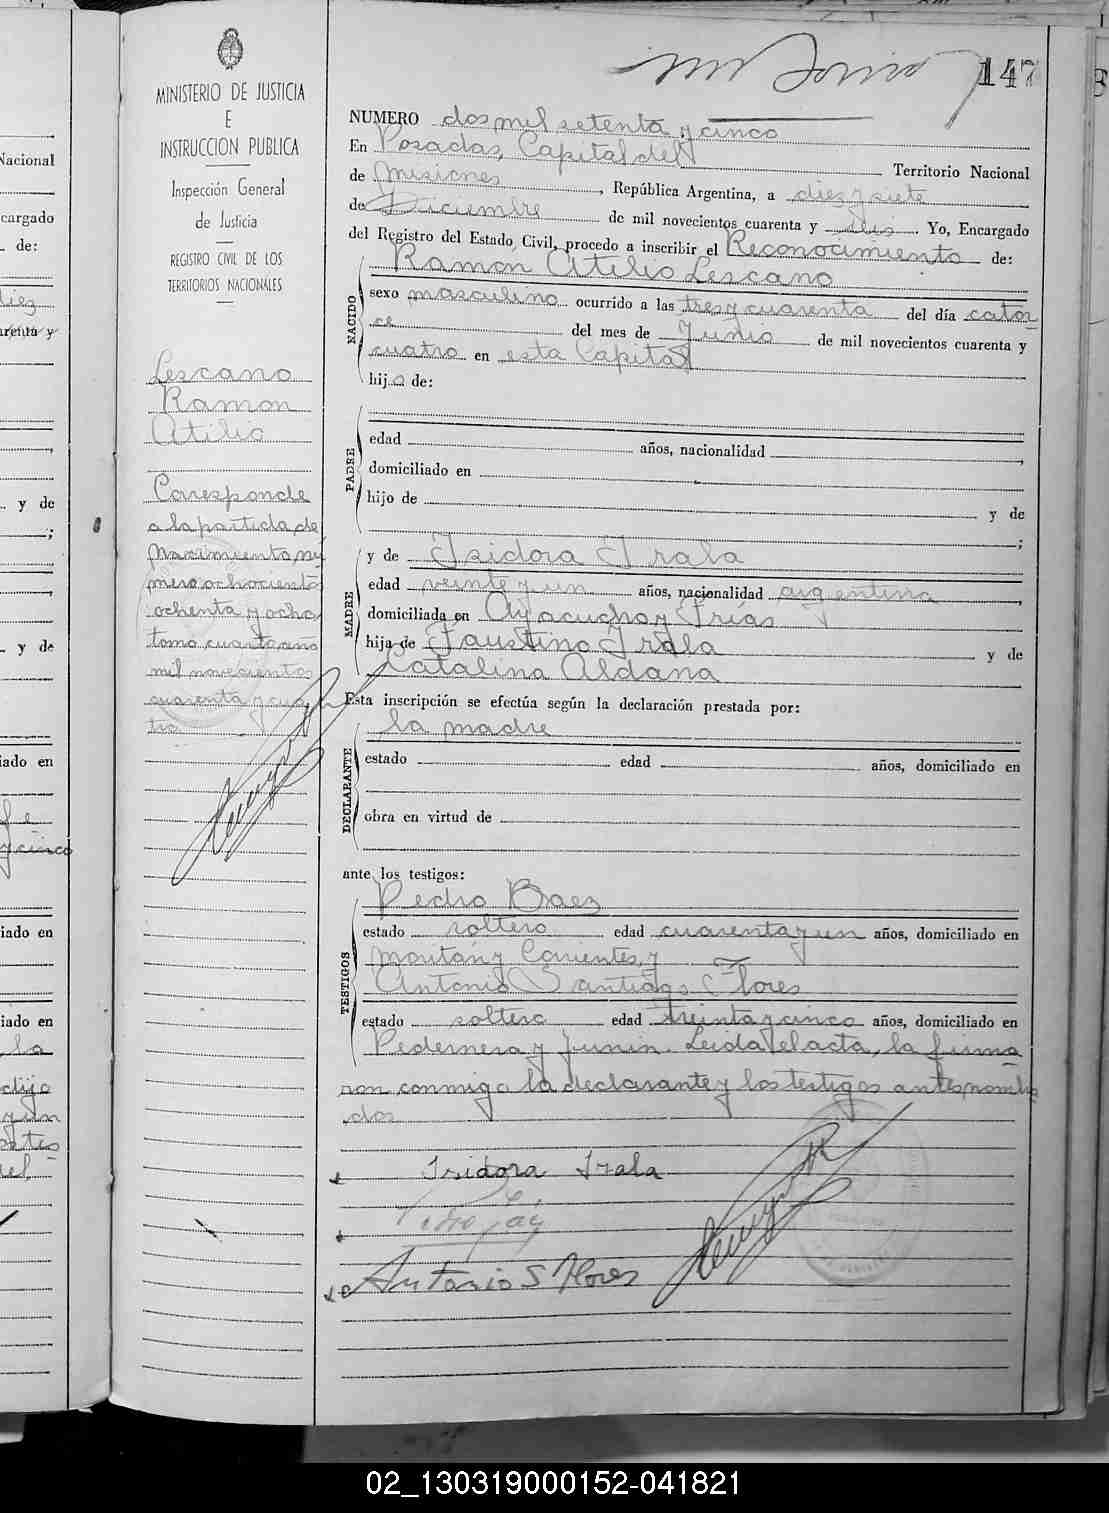 147
MINISTERIO DE JUSTICIA
E
INSTRUCCION PUBLICA
Inspección General
de Justicia
REGISTRO CIVIL DE LOS
TERRITORIOS NACIONALES
Lescano
Ramon
Atilio
Corresponde
a la partida de
nacimiento nú
mero ochocientos
ochenta y ocho
tomo cuarto año
mil novecientos
cuarenta y cua
tro
NUMERO dos mil setenta y cinco
En Posadas, Capital del Territorio Nacional
de Misiones, República Argentina, a diez y siete
de Diciembre de mil novecientos cuarenta y seis Yo, Encargado
del Registro del Estado Civil, procedo a inscribir el Reconocimiento de:
NACIDO
Ramon Atilio Lescano
sexo masculino ocurrido a las tres y cuarenta del día cator
ce del mes de Junio de mil novecientos cuarenta y
cuatro en esta Capital
hijo de:
PADRE
edad años, nacionalidad ,
domiciliado en
hijo de y de
;
MADRE
y de Isidora Irala
edad veinte y un años, nacionalidad argentina,
domiciliada en Ayacucho y Frías
hija de Faustino Irala y de
Catalina Aldana
Esta inscripción se efectúa según la declaración prestada por:
la madre
DECLARANTE
estado edad años, domiciliado en
obra en virtud de
ante los testigos:
TESTIGOS
Pedro Baez
estado soltero edad cuarenta y un años, domiciliado en
Moritán y Corrientes, y
Antonio Santiago Flores
estado soltero edad treinta y cinco años, domiciliado en
Pedernera y Junin. Leida el acta, la firma
ron conmigo la declarante y los testigos antes nombra
dos
Isidora Irala
Antonio S Flores
Nacional
cargado
de:
diez
arenta y
y de
;
y de
iado en
y cinco
iado en
iado en
la
dijo
y un
02_130319000152-041821